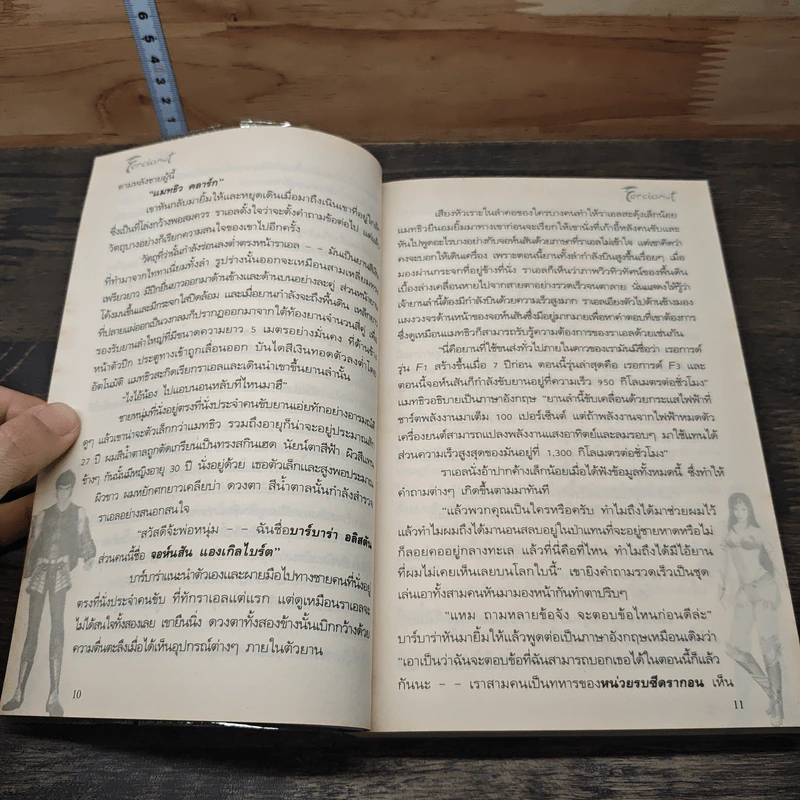 6 5 4 3 2 1
Fercianut
ตามหลังชายผู้นี้
"แมทธิว คลาร์ก"
เขาหันกลับมายิ้มให้และหยุดเดินเมื่อมาถึงเนินเขาที่อยู่
ซึ่งเป็นที่โล่งกว้างพอสมควร ราเอลตั้งใจว่าจะตั้งคำถามข้อต่อไป
วัตถุบางอย่างก็เรียกความสนใจของเขาไปอีกครั้ง
วัตถุที่ว่านั้นกำลังร่อนลงต่ำตรงหน้าราเอล – – มันเป็นยานสีเงิน
ที่ทำมาจากไททาเนียมทั้งลำ รูปร่างนั้นออกจะเหมือนสามเหลี่ยม
เพรียวยาว มีปีกยื่นยาวออกมาด้านข้างและด้านบนอย่างละคู่ ส่วนหน้า
โค้งมนขึ้นและมีกระจกใสปิดล้อม และเมื่อยานกำลังจะถึงพื้นดิน
ที่ปลายแผ่ออกเป็นวงกลมก็ปรากฏออกมาจากใต้ท้องยานจำนวนสี่คู่
รองรับยานลำใหญ่ที่มีขนาดความยาว 5 เมตรอย่างมั่นคง ที่ด้านข้าง
หน้าตัวปีก ประตูทางเข้าถูกเลื่อนออก บันไดสีเงินทอดตัวลงต่ำโดย
อัตโนมัติ แมทธิวสะกิดเรียกราเอลและเดินนำเขาขึ้นยานลำนั้น
"ไงไอ้น้อง ไปแอบนอนหลับที่ไหนมาฮึ"
ชายหนุ่มที่นั่งอยู่ตรงที่นั่งประจำคนขับยานเอ่ยทักอย่างอารมณ์ดี
ดูๆ แล้วเขาน่าจะตัวเล็กกว่าแมทธิว รวมถึงอายุก็น่าจะอยู่ประมาณสัก
27 ปี ผมสีน้ำตาลถูกตัดเกรียนเป็นทรงสกินเฮด นัยน์ตาสีฟ้า ผิวสีแทน
ข้างๆ กันนั้นมีหญิงอายุ 30 ปี นั่งอยู่ด้วย เธอตัวเล็กและสูงพอประมาณ
ผิวขาว ผมหยักศกยาวเคลียบ่า ดวงตา สีน้ำตาลนั้นกำลังสำรวจ
ราเอลอย่างสนอกสนใจ
"สวัสดีจ้ะพ่อหนุ่ม – – ฉันชื่อบาร์บาร่า อลิสตัน
ส่วนคนนี้ชื่อ จอห์นสัน แองเกิลไบร์ด"
บาร์บาร่าแนะนำตัวเองและผายมือไปทางชายคนที่นั่งอยู่
ตรงที่นั่งประจำคนขับ ที่ทักราเอลแต่แรก แต่ดูเหมือนราเอลจะ
ไม่ได้สนใจทั้งสองเลย เขายืนนิ่ง ดวงตาทั้งสองข้างนั้นเบิกกว้างด้วย
ความตื่นตะลึงเมื่อได้เห็นอุปกรณ์ต่างๆ ภายในตัวยาน
10
Fercianut
เสียงหัวเราะในลำคอของใครบางคนทำให้ราเอลสะดุ้งเล็กน้อย
แมทธิวยืนอมยิ้มมาทางเขาก่อนจะเรียกให้เขานั่งที่เก้าอี้หลังคนขับและ
หันไปพูดอะไรบางอย่างกับจอห์นสันด้วยภาษาที่ราเอลไม่เข้าใจ แต่เขาคิดว่า
คงจะบอกให้เดินเครื่อง เพราะตอนนี้ยานทั้งลำกำลังบินสูงขึ้นเรื่อยๆ เมื่อ
มองผ่านกระจกที่อยู่ข้างที่นั่ง ราเอลก็เห็นว่าภาพวิวทิวทัศน์ของพื้นดิน
เบื้องล่างเคลื่อนหายไปจากสายตาอย่างรวดเร็วจนตาลาย นั่นแสดงให้รู้ว่า
เจ้ายานลำนี้ต้องมีกำลังบินด้วยความเร็วสูงมาก ราเอลเอียงตัวไปด้านข้างมอง
แผงวงจรด้านหน้าของจอห์นสันซึ่งมีอยู่มากมายเพื่อหาคำตอบที่เขาต้องการ
ซึ่งดูเหมือนแมทธิวก็สามารถรับรู้ความต้องการของราเอลด้วยเช่นกัน
"นี่คือยานที่ใช้ขนส่งทั่วไปภายในดาวของเรามันมีชื่อว่า เรอการด์
รุ่น F1 สร้างขึ้นเมื่อ 7 ปีก่อน ตอนนี้รุ่นล่าสุดคือ เรอการด์ F3 และ
ตอนนี้จอห์นสันก็กำลังขับยานอยู่ที่ความเร็ว 950 กิโลเมตรต่อชั่วโมง"
แมทธิวอธิบายเป็นภาษาอังกฤษ "ยานลำนี้ขับเคลื่อนด้วยกระแสไฟฟ้าที่
ชาร์ตพลังงานมาเต็ม 100 เปอร์เซ็นต์ แต่ถ้าพลังงานจากไฟฟ้าหมดตัว
เครื่องยนต์สามารถแปลงพลังงานแสงอาทิตย์และลมรอบๆ มาใช้แทนได้
ส่วนความเร็วสูงสุดของมันอยู่ที่ 1,300 กิโลเมตรต่อชั่วโมง"
ราเอลนั่งอ้าปากค้างเล็กน้อยเมื่อได้ฟังข้อมูลทั้งหมดนี้ ซึ่งทำให้
คำถามต่างๆ เกิดขึ้นตามมาทันที
"แล้วพวกคุณเป็นใครหรือครับ ทำไมถึงได้มาช่วยผมไว้
แล้วทำไมผมถึงได้มานอนสลบอยู่ในป่าแทนที่จะอยู่ชายหาดหรือไม่
ก็ลอยคออยู่กลางทะเล แล้วที่นี่คือที่ไหน ทำไมถึงได้มีไอ้ยาน
ที่ผมไม่เคยเห็นเลยบนโลกใบนี้" เขายิงคำถามรวดเร็วเป็นชุด
เล่นเอาทั้งสามคนหันมามองหน้ากันทำตาปริบๆ
"แหม ถามหลายข้อจัง จะตอบข้อไหนก่อนดีล่ะ"
บาร์บาร่าหันมายิ้มให้แล้วพูดต่อเป็นภาษาอังกฤษเหมือนเดิมว่า
"เอาเป็นว่าฉันจะตอบข้อที่ฉันสามารถบอกเธอได้ในตอนนี้ก็แล้ว
กันนะ – – เราสามคนเป็นทหารของหน่วยรบซีดรากอน เห็น
11